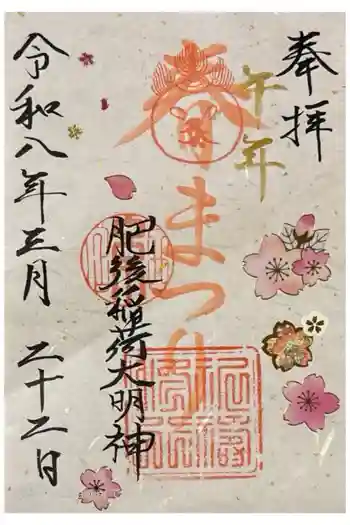 奉拝
午年
春まつり
肥後稲荷大明神
令和八年三月二十二日